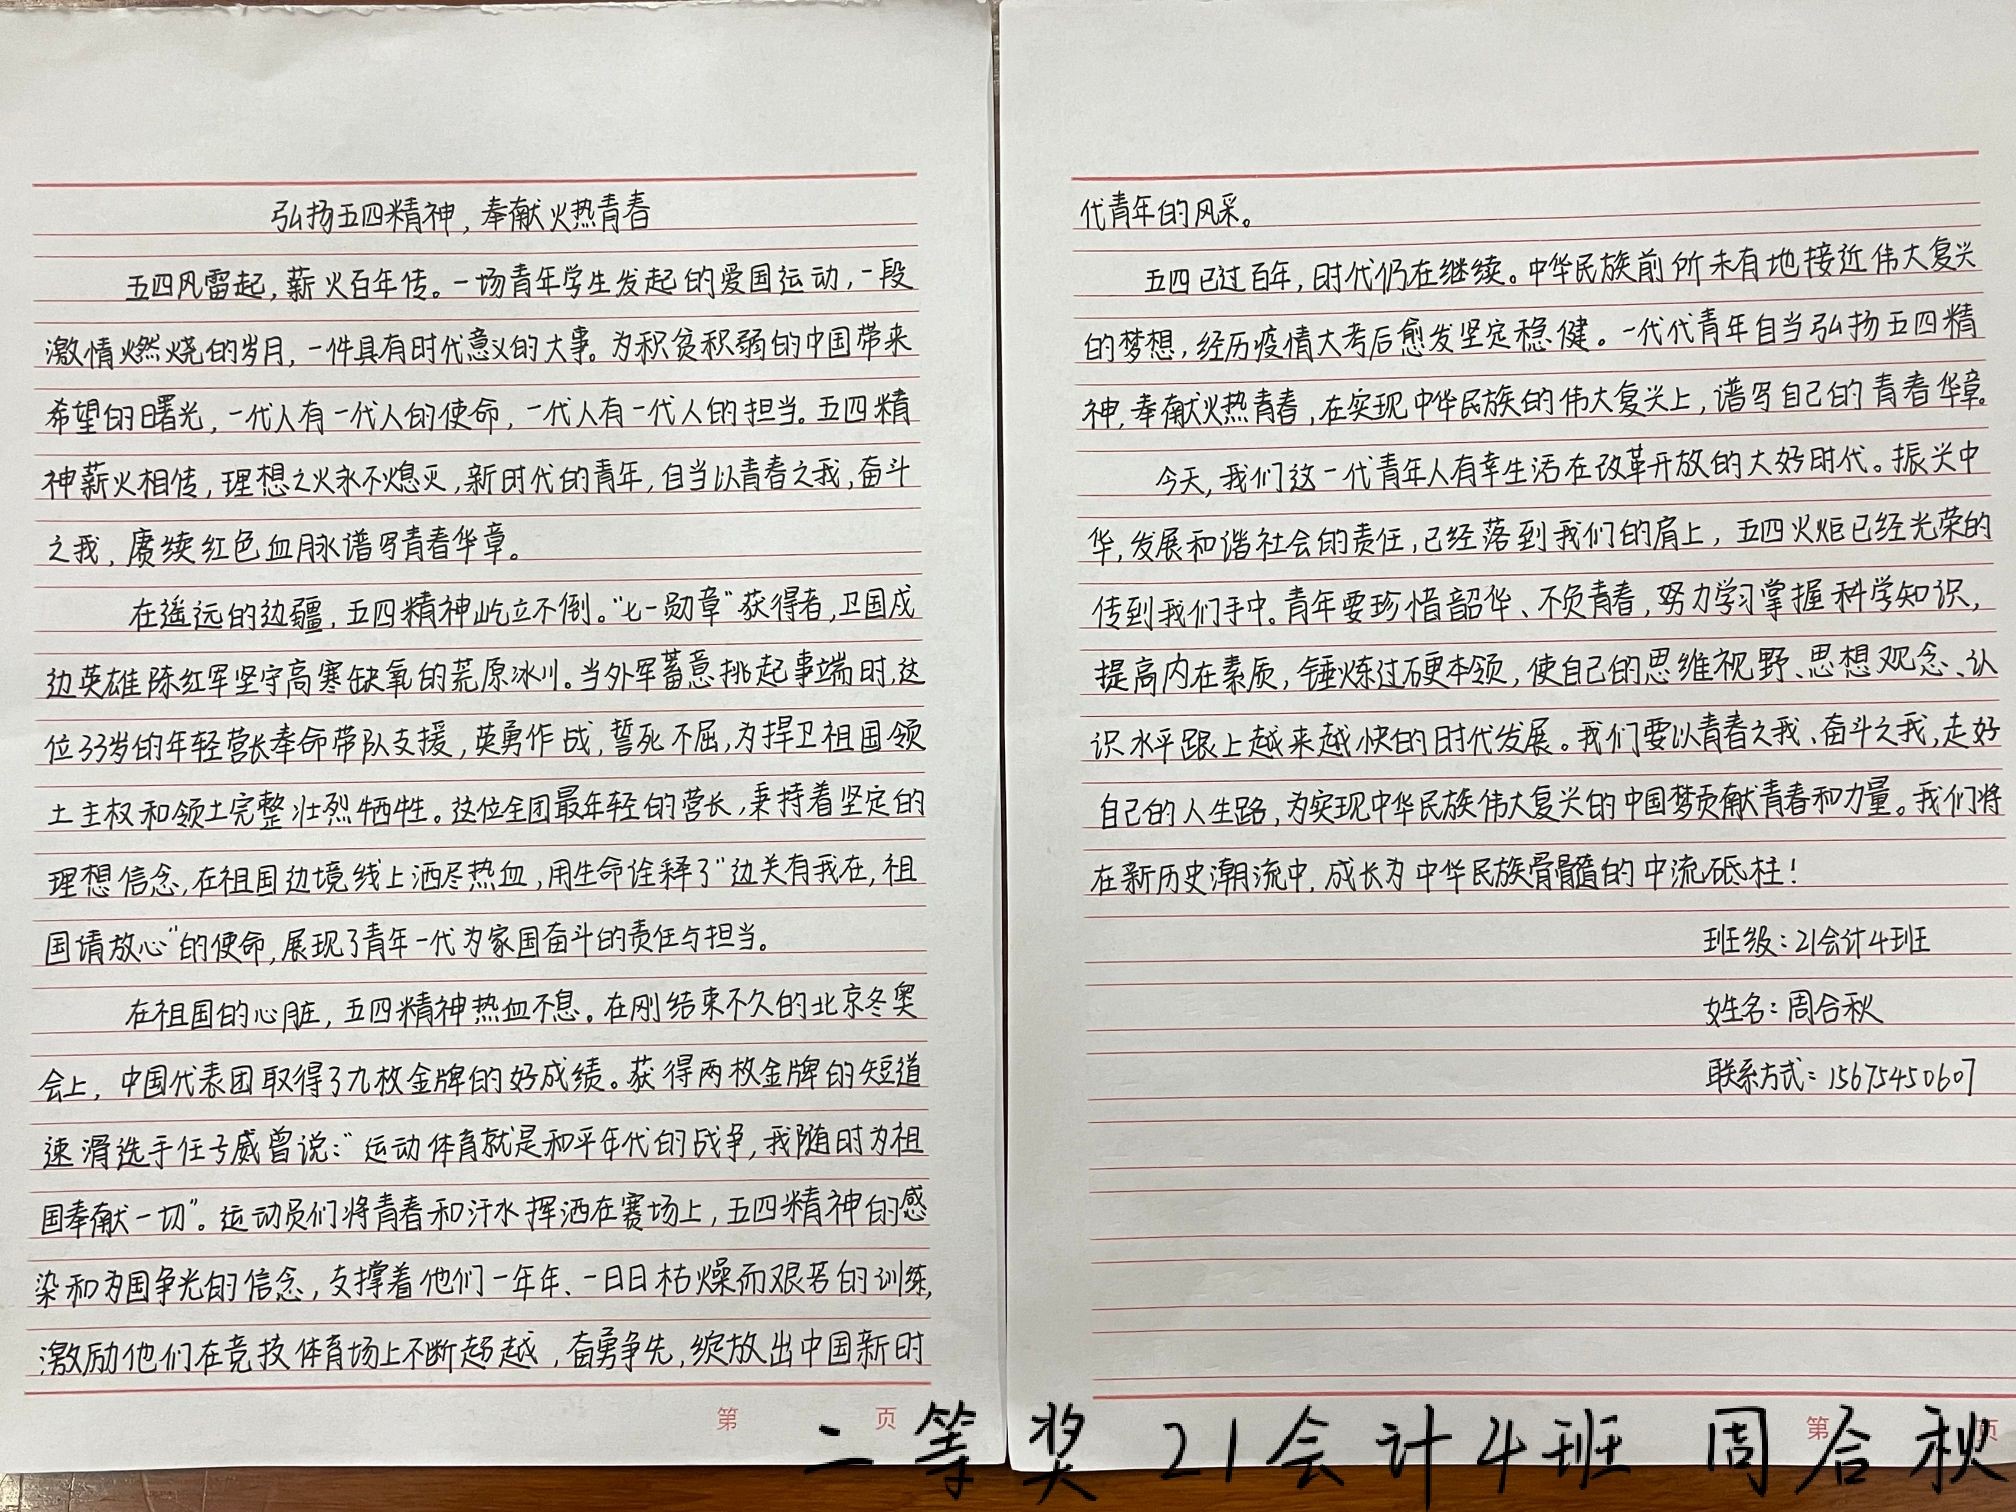 弘扬五四精神，奉献火热青春
五四风雷起，薪火百年传。一场青年学生发起的爱国运动，一段
激情燃烧的岁月，一件具有时代意义的大事。为积贫积弱的中国带来
希望的曙光，一代人有一代人的使命，一代人有一代人的担当。五四精
神薪火相传，理想之火永不熄灭，新时代的青年，自当以青春之我，奋斗
之我，赓续红色血脉谱写青春华章。
在遥远的边疆，五四精神屹立不倒。“七一勋章”获得者，卫国戍
边英雄陈红军坚守高寒缺氧的荒原冰川。当外军蓄意挑起事端时，这
位33岁的年轻营长奉命带队支援，英勇作战，誓死不屈，为捍卫祖国领
土主权和领土完整壮烈牺牲。这位全团最年轻的营长，秉持着坚定的
理想信念，在祖国边境线上洒尽热血，用生命诠释了“边关有我在，祖
国请放心”的使命，展现了青年一代为家国奋斗的责任与担当。
在祖国的心脏，五四精神热血不息。在刚结束不久的北京冬奥
会上，中国代表团取得了九枚金牌的好成绩。获得两枚金牌的短道
速滑选手任子威曾说：“运动体育就是和平年代的战争，我随时为祖
国奉献一切”。运动员们将青春和汗水挥洒在赛场上，五四精神的感
染和为国争光的信念，支撑着他们一年年、一日日枯燥而艰苦的训练，
激励他们在竞技体育场上不断超越，奋勇争先，绽放出中国新时
第 页
代青年的风采。
五四已过百年，时代仍在继续。中华民族前所未有地接近伟大复兴
的梦想，经历疫情大考后愈发坚定稳健。一代代青年自当弘扬五四精
神，奉献火热青春，在实现中华民族的伟大复兴上，谱写自己的青春华章。
今天，我们这一代青年人有幸生活在改革开放的大好时代。振兴中
华，发展和谐社会的责任，已经落到我们的肩上，五四火炬已经光荣的
传到我们手中。青年要珍惜韶华、不负青春，努力学习掌握科学知识，
提高内在素质，锤炼过硬本领，使自己的思维视野、思想观念、认
识水平跟上越来越快的时代发展。我们要以青春之我、奋斗之我，走好
自己的人生路，为实现中华民族伟大复兴的中国梦贡献青春和力量。我们将
在新历史潮流中，成长为中华民族骨髓的中流砥柱！
班级：21会计4班
姓名：周合秋
联系方式：15675450607
第 页
二等奖 21会计4班 周合秋